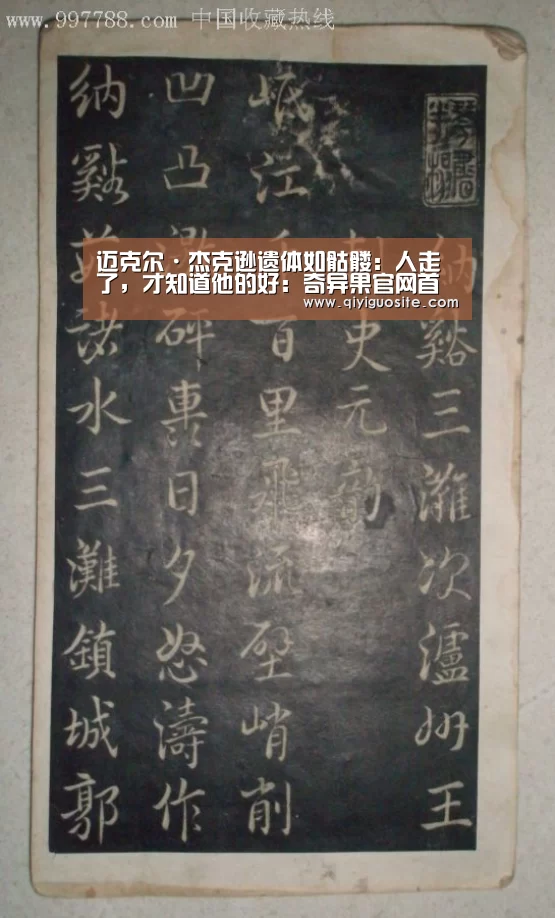 www.997788.com 中国收藏热线
納谿三灘次瀘州王
史元
岷江百里飛流壁峭削
凹凸激砰轟日夕怒濤作
納谿諸水三灘鎮城郭
迈克尔·杰克逊遗体如骷髅：人走
了，才知道他的好：奇异果官网首
www.qiyiguosite.com